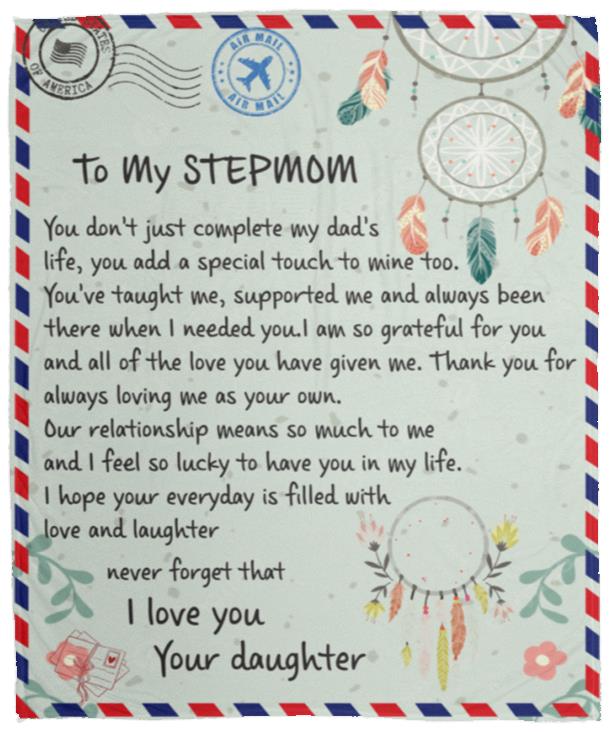 STATES
OF AMERICA
AIR MAIL
AIR MAIL
To My STEPMOM
You don't just complete my dad's
life, you add a special touch to mine too.
You've taught me, supported me and always been
there when I needed you.I am so grateful for you
and all of the love you have given me. Thank you for
always loving me as your own.
Our relationship means so much to me
and I feel so lucky to have you in my life.
I hope your everyday is filled with
love and laughter
never forget that
I love you
Your daughter